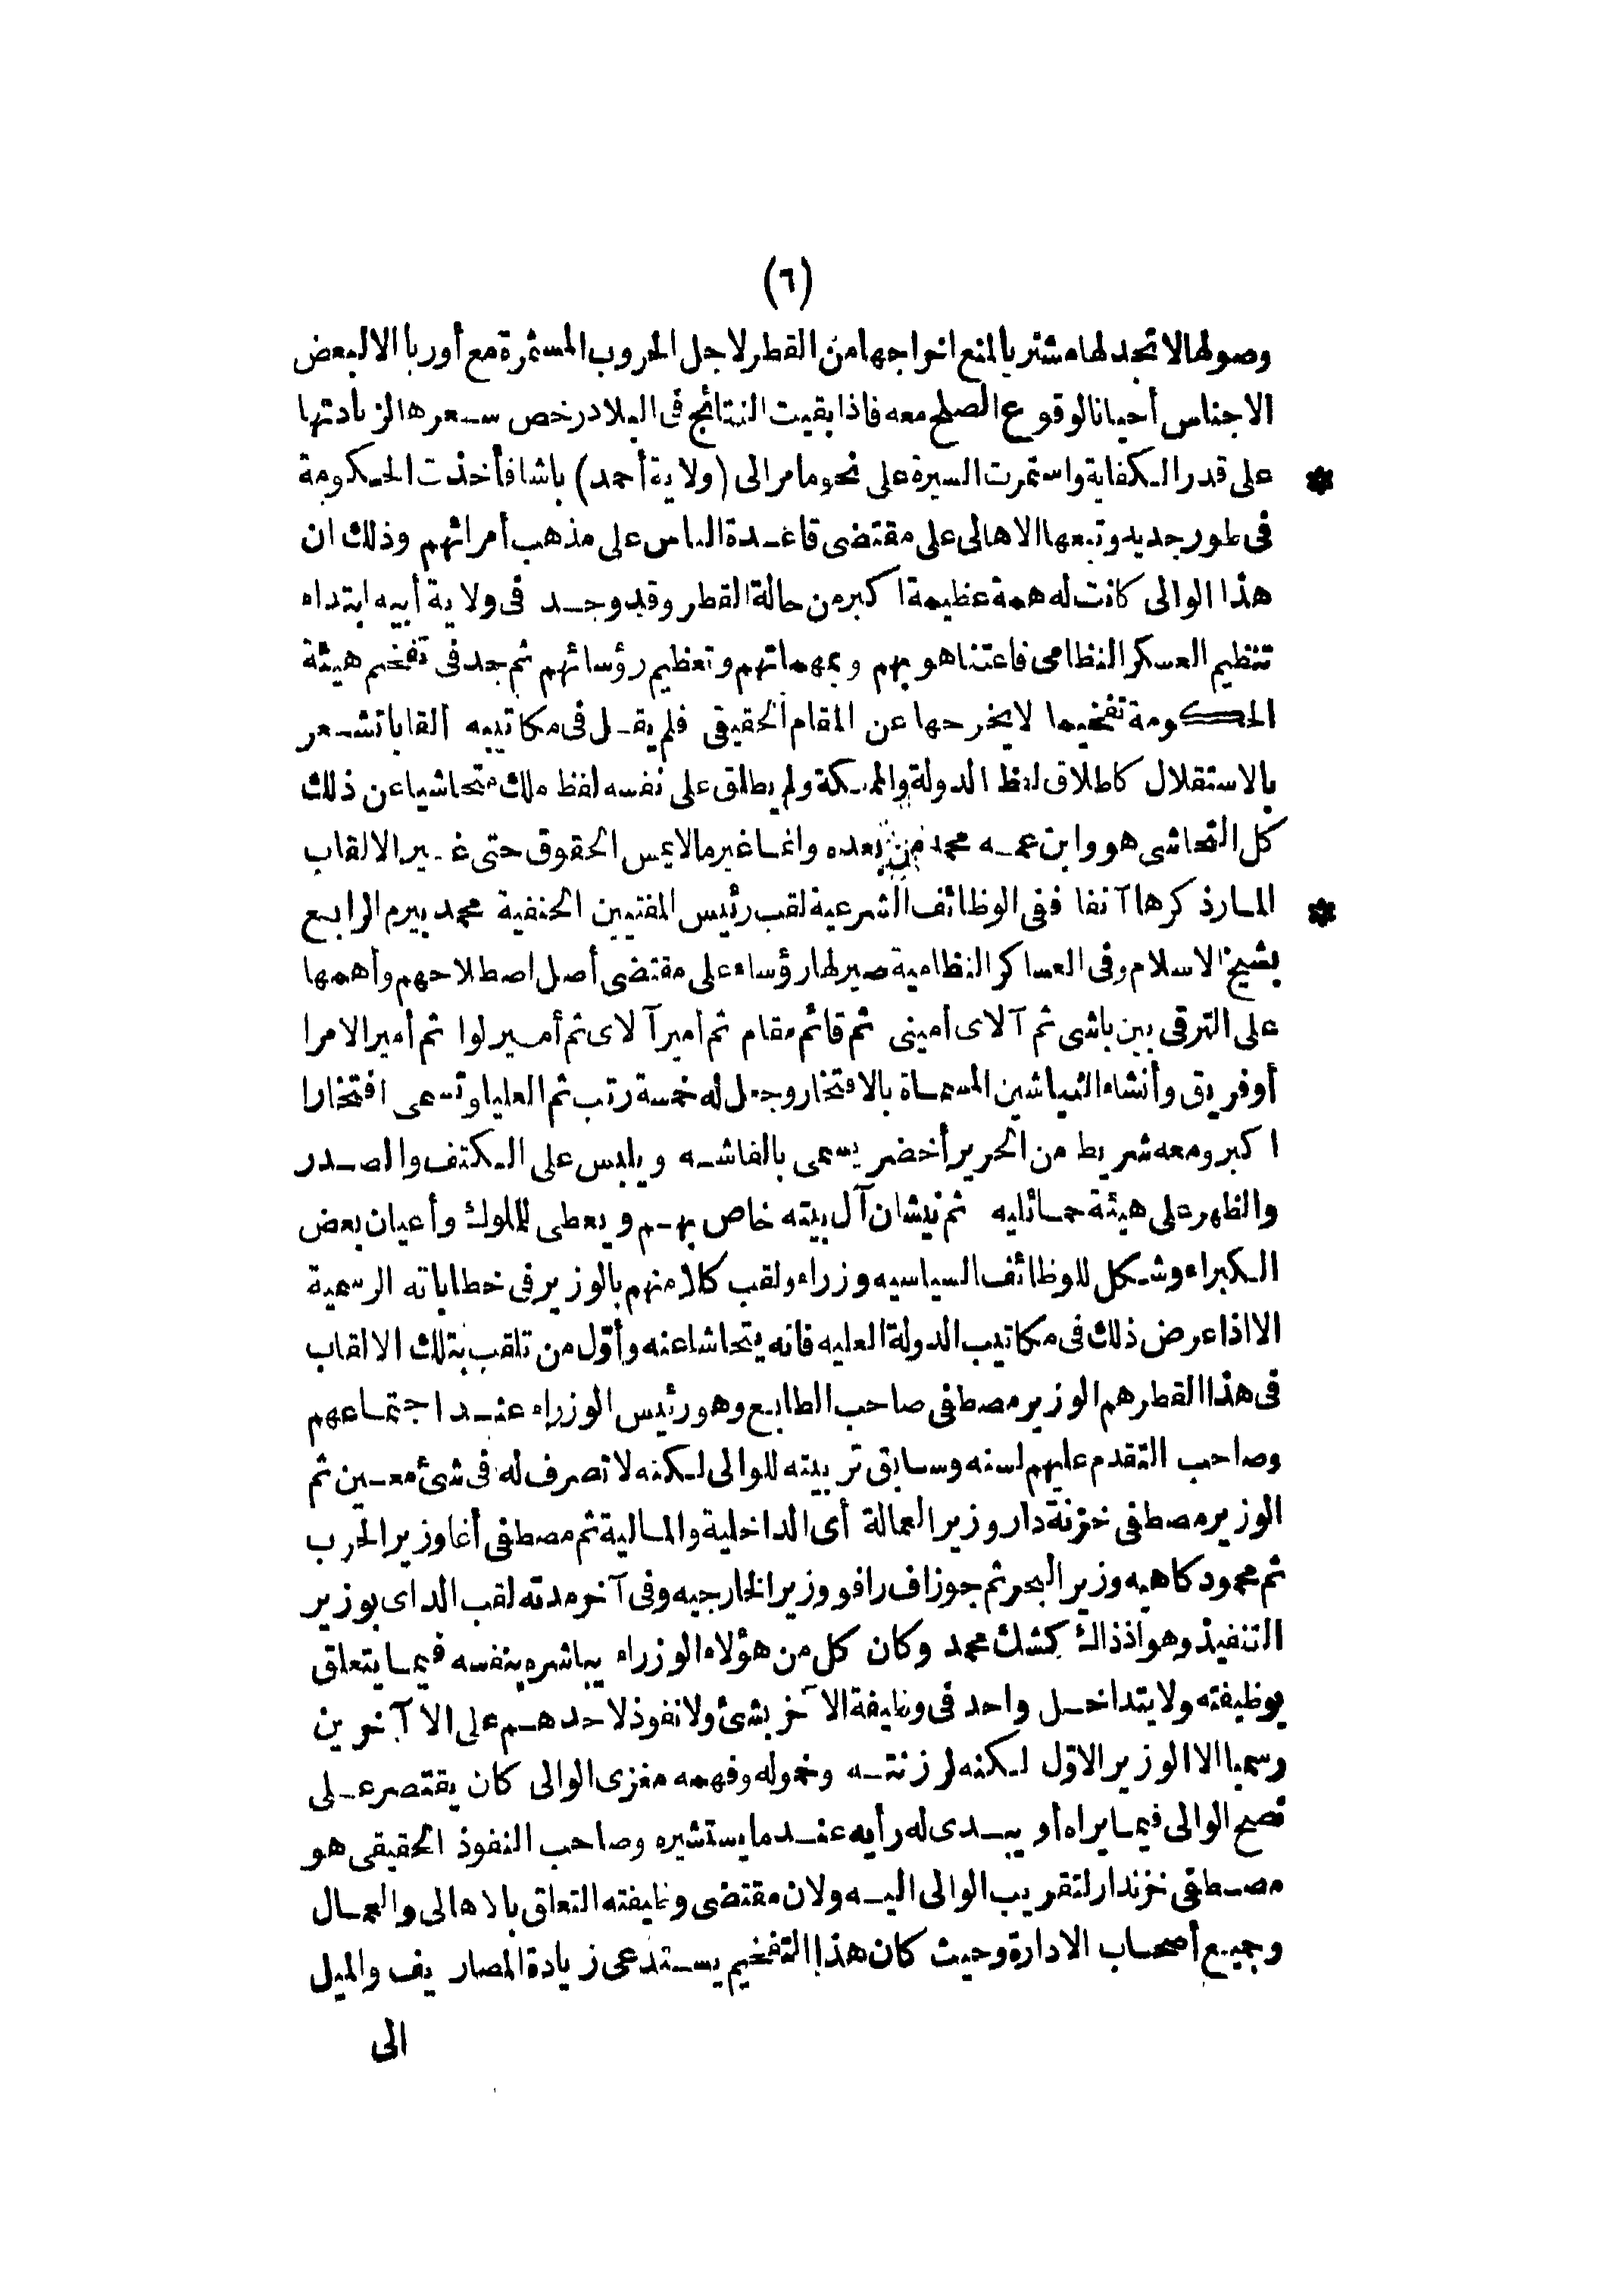 (٦)
وصولها لا تجد لها مشتريا لمنع اخراجها من القطر لاجل الحروب المستمرة مع أوربا الا لبعض
الاجناس أحيانا لوقوع الصلح معه فاذا بقيت النتائج فى البلاد رخص سعرها لزيادتها
* على قدر الكفاية واستمرت السيرة على نحو ما مر الى (ولاية أحمد) باشا فأخذت الحكومة
فى طور جديد وتبعها الاهالى على مقتضى قاعدة الناس على مذهب أمرائهم وذلك ان
هذا الوالى كانت له همة عظيمة اكبر من حالة القطر وقد وجد فى ولاية أبيه ابتداء
تنظيم العسكر النظامى فاعتنا هو بهم وبمهماتهم وتعظيم رؤسائهم ثم جد فى تفخيم هيئة
الحكومة تفخيما لا يخرجها عن المقام الحقيقى فلم يقل فى مكاتيبه ألقابا تشعر
بالاستقلال كاطلاق لفظ الدولة والمملكة ولم يطلق على نفسه لفظ ملك متحاشيا عن ذلك
كل التحاشى هو وابن عمه محمد من بعده وانما غير ما لا يمس الحقوق حتى غير الالقاب
* المار ذكرها آنفا ففى الوظائف الشرعية لقب رئيس المفتيين الحنفية محمد بيرم الرابع
بشيخ الاسلام وفى العساكر النظامية صير لها رؤساء على مقتضى أصل اصطلاحهم وأهمها
على الترقى بين باشى ثم آلاى أمينى ثم قائم مقام ثم أمير آلاى ثم أمير لوا ثم أمير الامرا
أو فريق وأنشاء النياشين المسماة بالافتخار وجعل له خمسة رتب ثم العليا وتسمى افتخارا
اكبر ومعه شريط من الحرير أخضر يسمى بالفاشه ويلبس على الكتف والصدر
والظهر على هيئة حمائليه ثم نيشان آل بيته خاص بهم ويعطى للملوك وأعيان بعض
الكبراء وشكل للوظائف السياسيه وزراء ولقب كلا منهم بالوزير فى خطاباته الرسمية
الا اذا عرض ذلك فى مكاتيب الدولة العليه فانه يتحاشا عنه وأوّل من تلقب بتلك الالقاب
فى هذا القطر هم الوزير مصطفى صاحب الطابع وهو رئيس الوزراء عند اجتماعهم
وصاحب التقدم عليهم لسنه وسابق تربيته للوالى لكنه لا تصرف له فى شئ معين ثم
الوزير مصطفى خزنة دار وزير العمالة أى الداخلية والمالية ثم مصطفى أغا وزير الحرب
ثم محمود كاهيه وزير البحر ثم جوزاف رافو وزير الخارجيه وفى آخر مدته لقب الداى بوزير
التنفيذ وهو اذ ذاك كشك محمد وكان كل من هؤلاء الوزراء يباشره بنفسه فيما يتعلق
بوظيفته ولا يتداخل واحد فى وظيفة الآخر بشئ ولا نفوذ لاحدهم على الآخرين
رسميا الا الوزير الاوّل لكنه لرزنته وخموله وفهمه مغزى الوالى كان يقتصر على
نصح الوالى فيما يراه أو يبدى له رأيه عندما يستشيره وصاحب النفوذ الحقيقى هو
مصطفى خزندار لتقريب الوالى اليه ولان مقتضى وظيفته التعلق بالاهالى والعمال
وجميع أصحاب الادارة وحيث كان هذا التفخيم يستدعى زيادة المصاريف والميل
الى